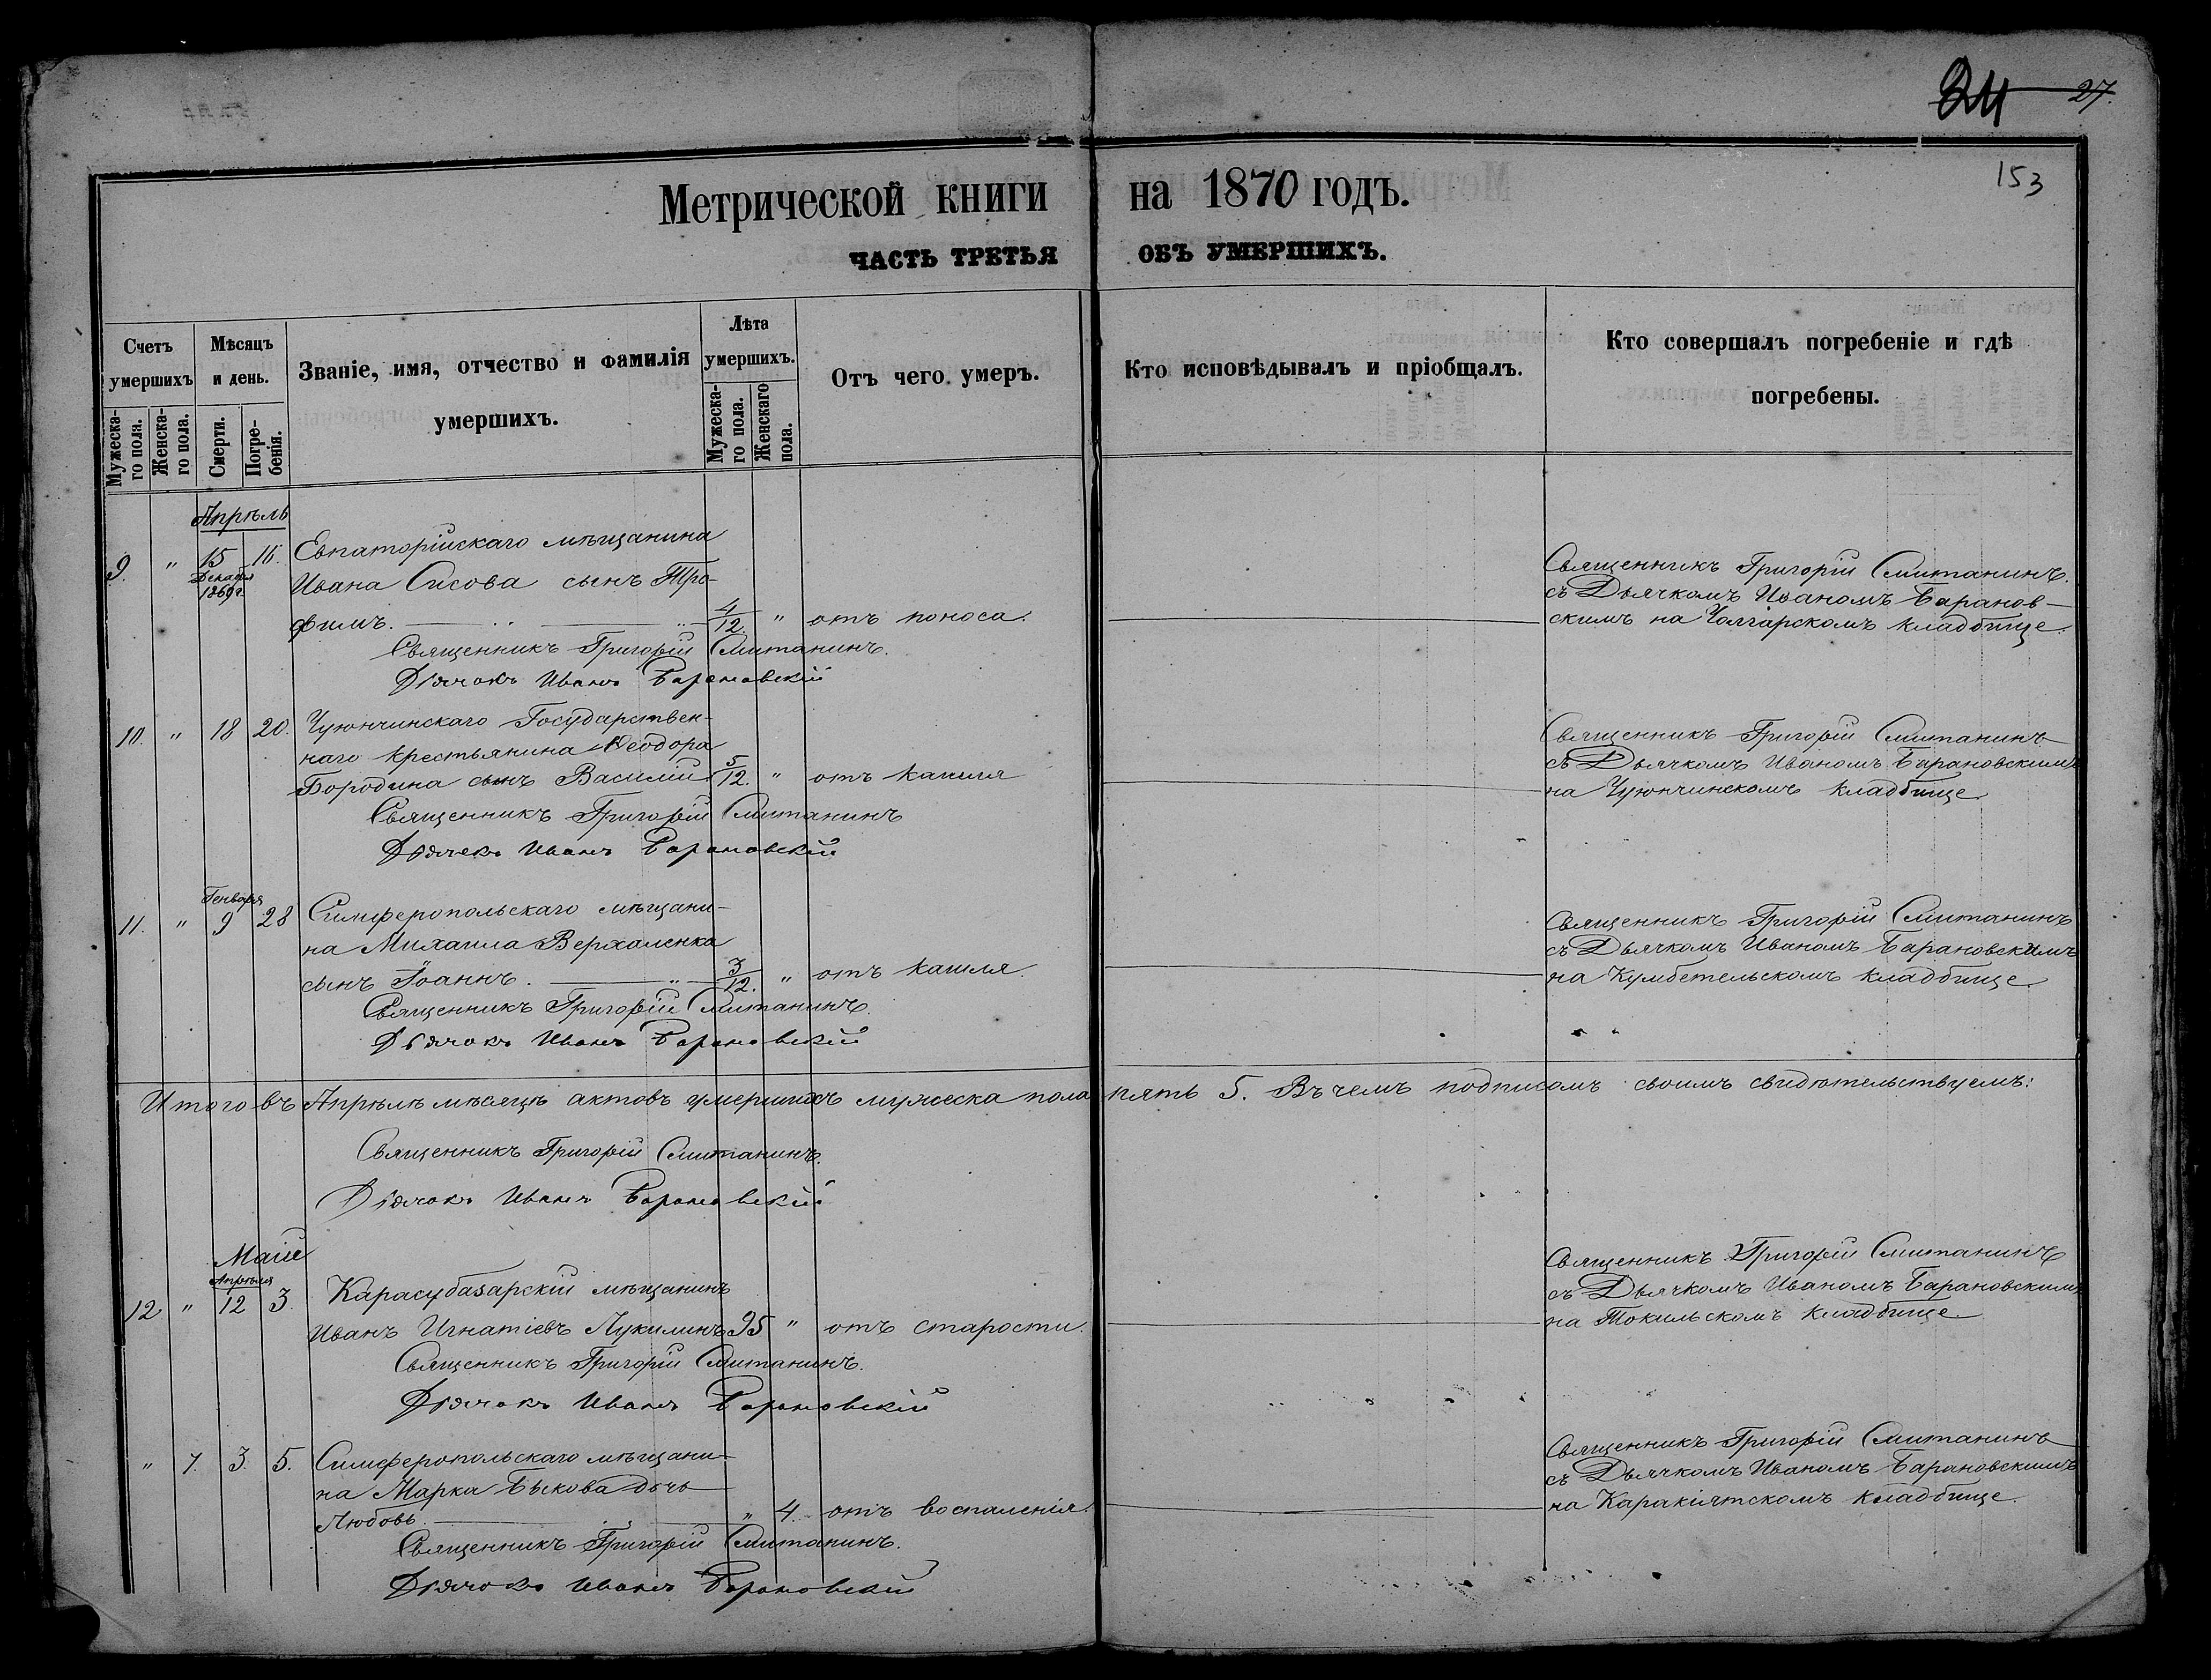 24 27.
153
Метрической книги на 1870 годъ.
ЧАСТЬ ТРЕТЬЯ ОБЪ УМЕРШИХЪ.
Счетъ умершихъ
Мужеска-го пола.
Женска-го пола.
Мѣсяцъ и день.
Смерти.
Погре-бенія.
Званіе, имя, отчество и фамилія умершихъ.
Лѣта умершихъ.
Мужеска-го пола.
Женскаго пола.
Отъ чего умеръ.
Кто исповѣдывалъ и пріобщалъ.
Кто совершалъ погребеніе и гдѣ погребены.
Апрѣль
9. " 15 16. Евпаторійскаго мѣщанина
Декабря
1869 г.
Ивана Сисова сынъ Тро-
фимъ. 4/12. " отъ поноса.
Священникъ Григорій Смитанинъ.
съ Дьячкомъ Иваномъ Баранов-
скимъ на Чолгарскомъ кладбище.
Священникъ Григорій Смитанинъ.
Дьячокъ Иванъ Барановскій
10. " 18 20. Чуюнчинскаго Государствен-
наго крестьянина Ѳеодора
Бородина сынъ Василій 5/12. " отъ кашля
Священникъ Григорій Смитанинъ
съ Дьячкомъ Иваномъ Барановскимъ
на Чуюнчинскомъ кладбище
Священникъ Григорій Смитанинъ
Дьячекъ Иванъ Барановскій
Генваря
11. " 9 28 Симферопольскаго мѣщани-
на Михаила Верхаленка
сынъ Іоаннъ. 3/12. " отъ кашля.
Священникъ Григорій Смитанинъ
съ Дьячкомъ Иваномъ Барановскимъ
на Кумбетельскомъ кладбище
Священникъ Григорій Смитанинъ.
Дьячокъ Иванъ Барановскій
Итого въ Апрѣлѣ мѣсяцѣ актовъ умершихъ мужеска пола пять 5. Въ чемъ подписомъ своимъ свидѣтельствуемъ:
Священникъ Григорій Смитанинъ.
Дьячокъ Иванъ Барановскій
Маій
Апрѣля
12 " 12 3. Карасубазарскій мѣщанинъ
Иванъ Игнатіевъ Лукилинъ 95 " отъ старости.
Священникъ Григорій Смитанинъ
съ Дьячкомъ Иваномъ Барановскимъ
на Токильскомъ кладбище
Священникъ Григорій Смитанинъ.
Дьячокъ Иванъ Барановскій
" 7. 3. 5. Симферопольскаго мѣщани-
на Марка Быкова дочь
Любовь. " 4. отъ воспаленія.
Священникъ Григорій Смитанинъ
съ Дьячкомъ Иваномъ Барановскимъ
на Каракіятскомъ кладбище.
Священникъ Григорій Смитанинъ.
Дьячокъ Иванъ Барановскій